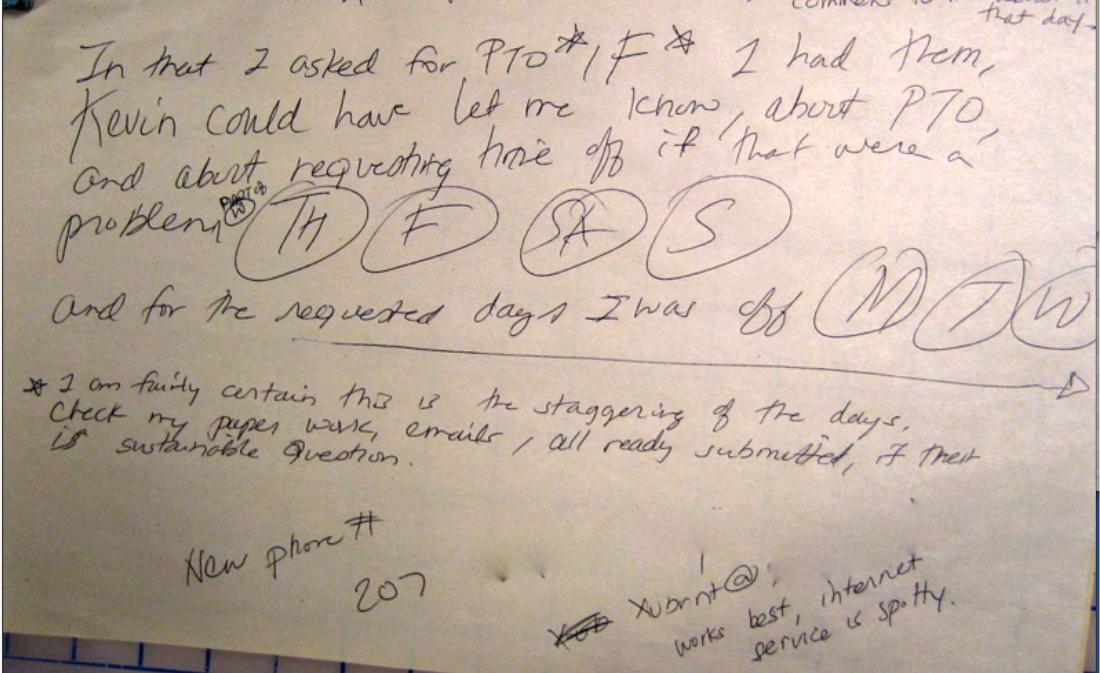 that day.
In that I asked for PTO*, F* I had them,
Kevin could have let me know, about PTO,
and about requesting time off if that were a
problem, PART of W TH F SA S
and for the requested days I was off M T W
* I am fairly certain this is the staggering of the days.
Check my paper work, emails, all ready submitted, if their
is sustainable Question.
New phone #
207
Xubrnt@
works best, internet
service is spotty.